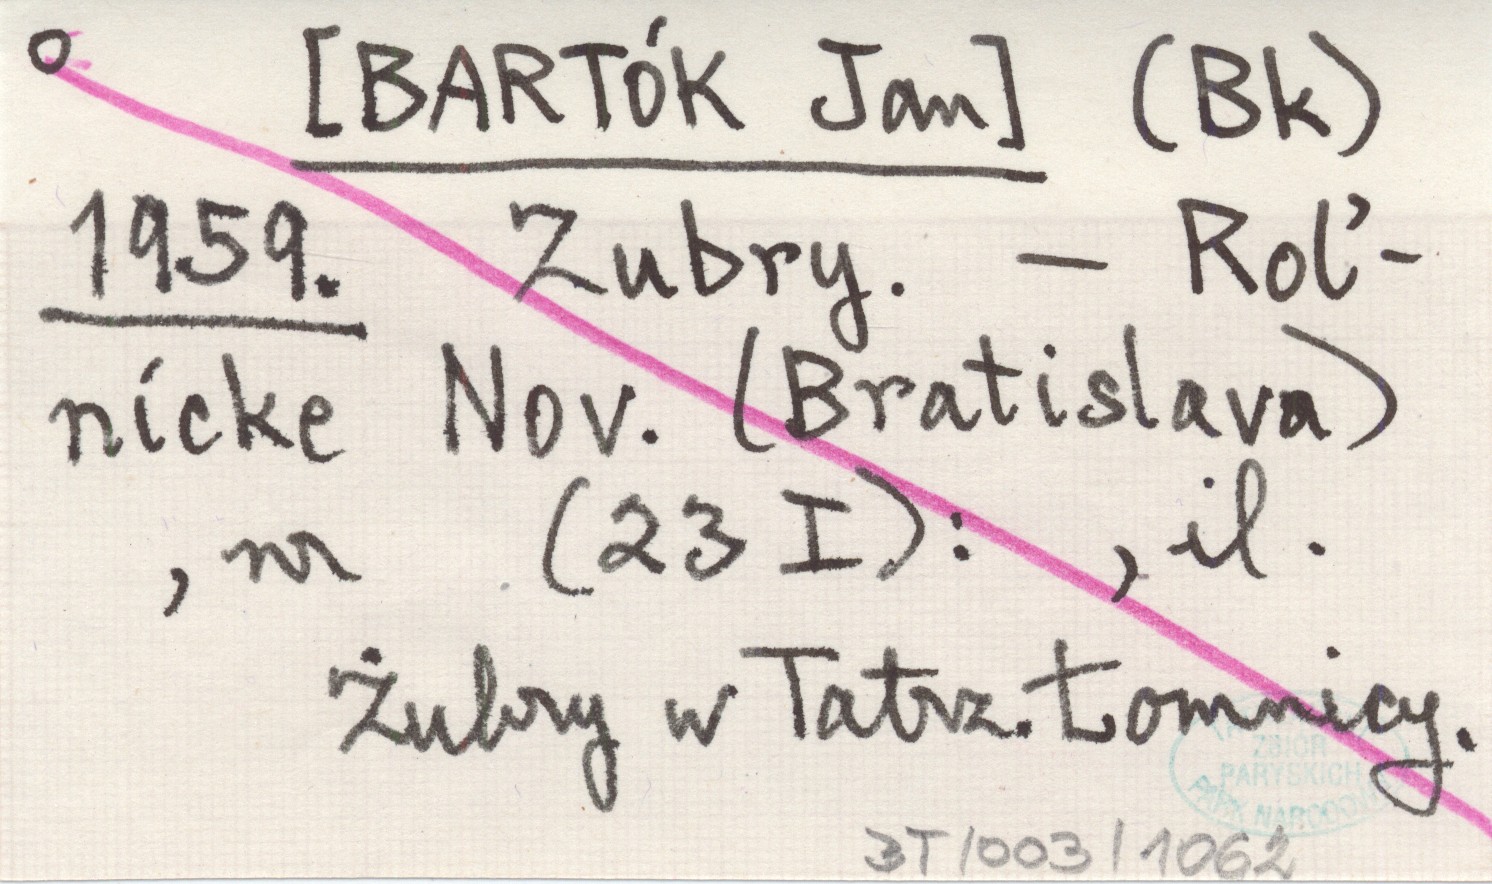 [BARTÓK Jan] (Bk)
1959. Zubry. — Roľ-
nícke Nov. (Bratislava)
, nr (23 I): , il.
Żubry w Tatrz. Łomnicy.
ZBIÓR
PARYSKICH
3T/003/1062